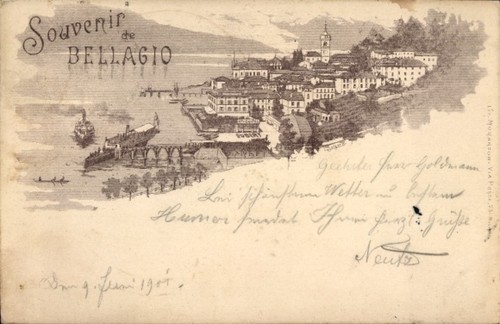 Souvenir
de
BELLAGIO
Geehrter Herr Goldmann
Bei schönstem Wetter u bestem
Humor sendet Ihnen herzl. Grüße
Neutz
Den 9. Juni 190